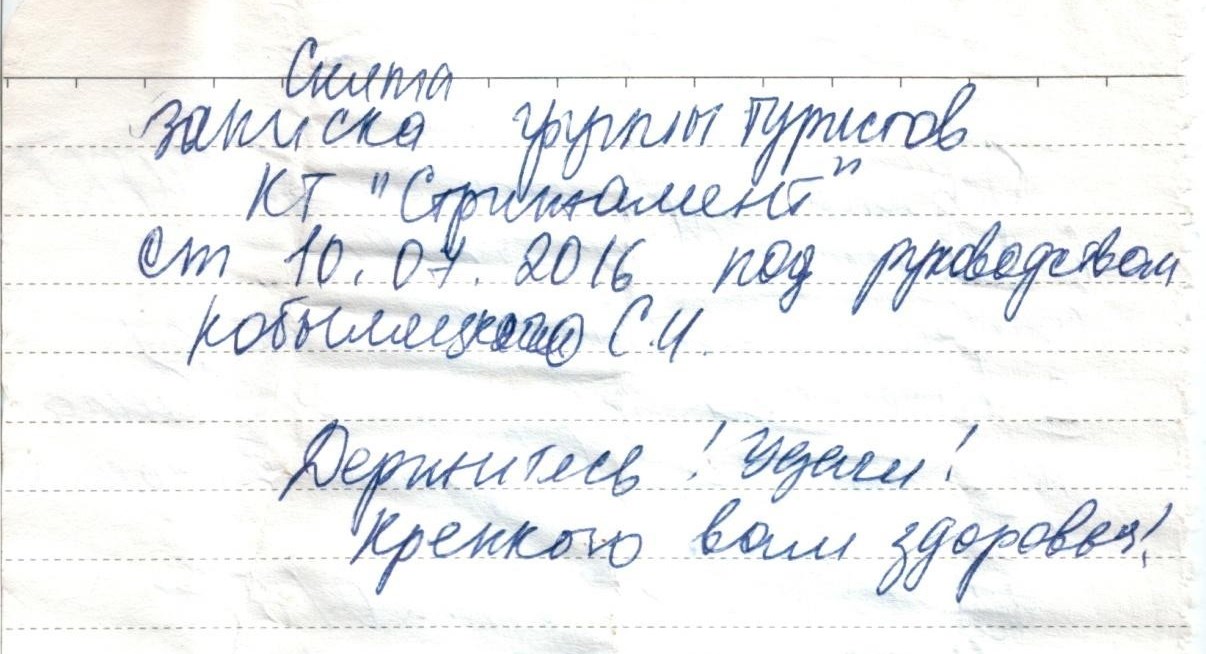 Снята
записка группы туристов
КТ "Стрижамент"
от 10.07.2016 под руководством
Кобыляцкого С.И.
Держитесь! Удачи!
Крепкого вам здоровья!